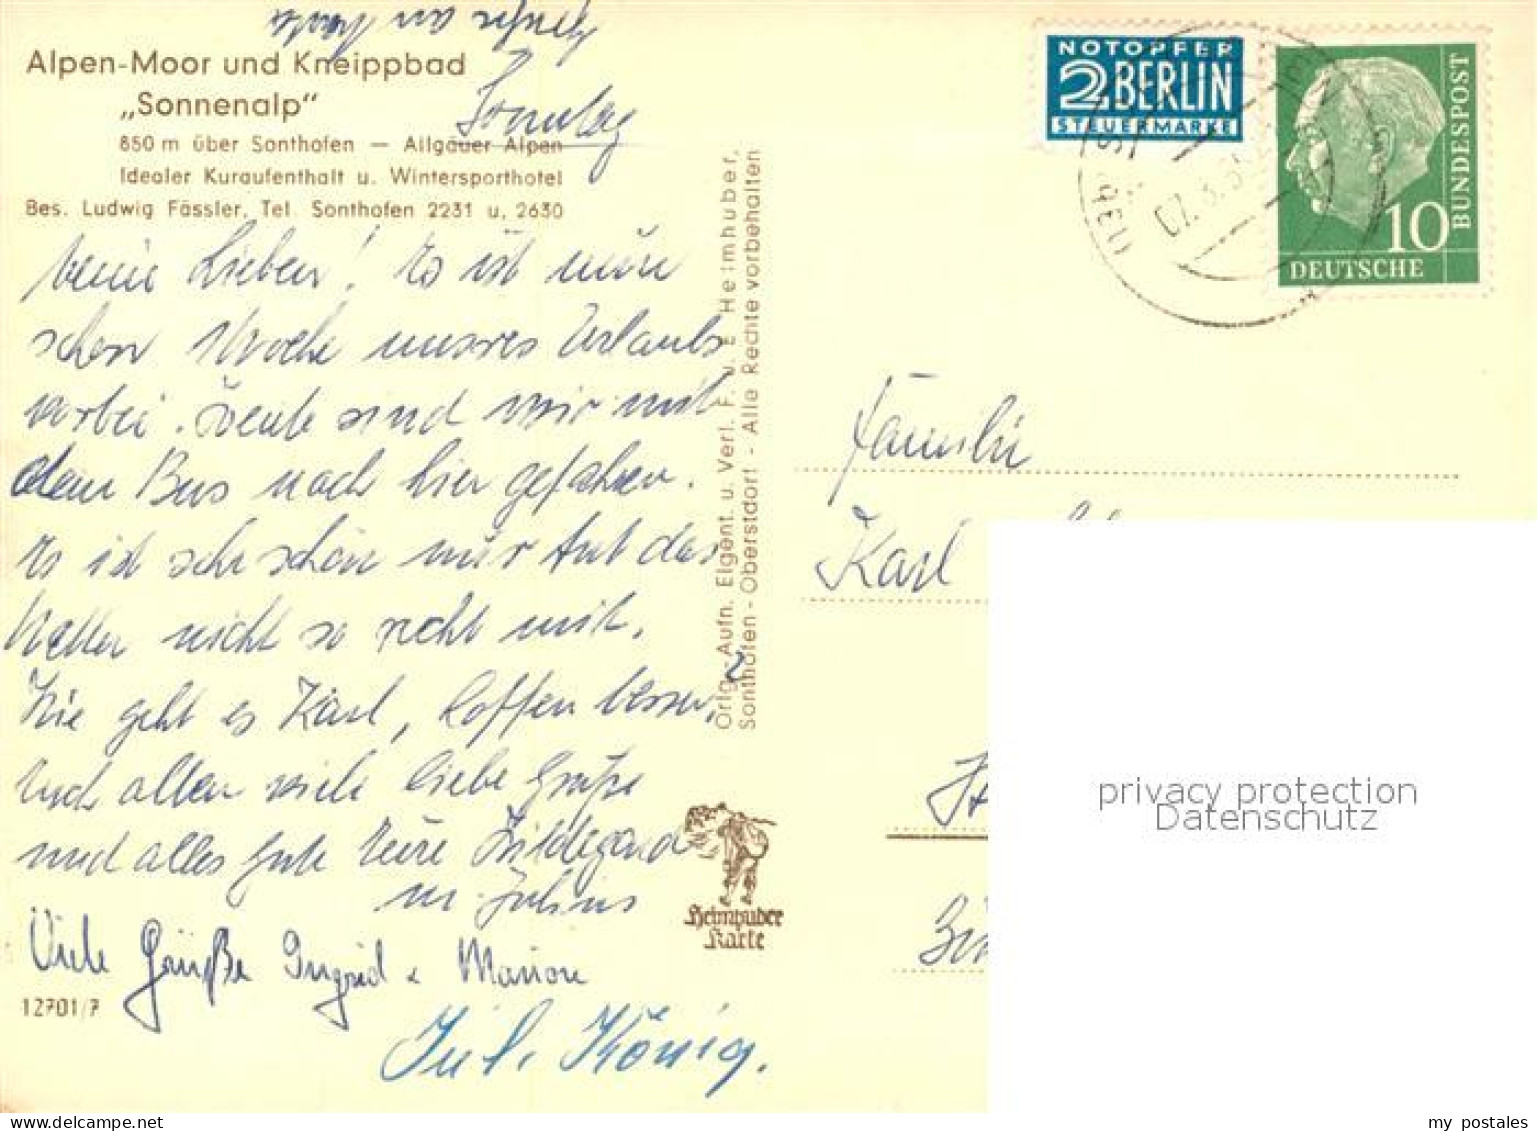 Grüße an
Alpen-Moor und Kneippbad
„Sonnenalp“
Sonntag
850 m über Sonthofen — Allgäuer Alpen
Idealer Kuraufenthalt u. Wintersporthotel
Bes. Ludwig Fässler, Tel. Sonthofen 2231 u. 2630
Meine Lieben! Es ist nun
schon 1 Woche unseres Urlaubs
vorbei. Heute sind wir mit
dem Bus nach hier gefahren.
Es ist sehr schön nur tut das
Wetter nicht so recht mit.
Wie geht es Karl, hoffen besser?
Euch allen viele liebe Grüße
und alles Gute Eure Hildegard
u. Julius
Viele Grüße Ingrid & Marion
Jul. König.
12701/7
Orig.-Aufn. Eigent. u. Verl. F. u. E Heimhuber,
Sonthofen - Oberstdorf - Alle Rechte vorbehalten
Heimhuber
Karte
NOTOPFER
2 BERLIN
STEUERMARKE
DEUTSCHE
BUNDESPOST
10
Familie
Karl
privacy protection
Datenschutz
my postales